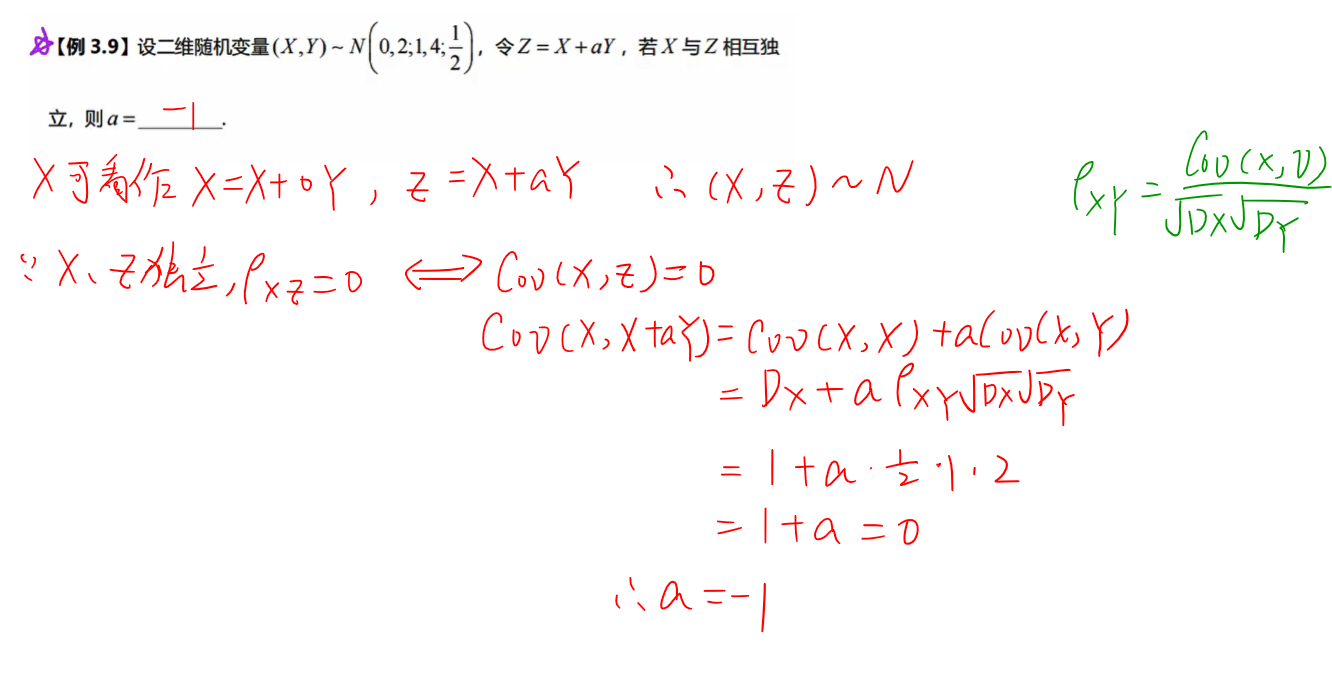 【例 3.9】设二维随机变量(X,Y) ~ N(0,2;1,4;1/2)，令Z=X+aY，若X与Z相互独
立，则a=-1.
X可看作X=X+0Y，Z=X+aY ∴(X,Z)~N
ρXY=Cov(X,Y)/√DX√DY
∵X、Z独立,ρXZ=0 ⟺ Cov(X,Z)=0
Cov(X,X+aY)=Cov(X,X)+aCov(X,Y)
=DX+aρXY√DX√DY
=1+a·1/2·1·2
=1+a=0
∴a=-1